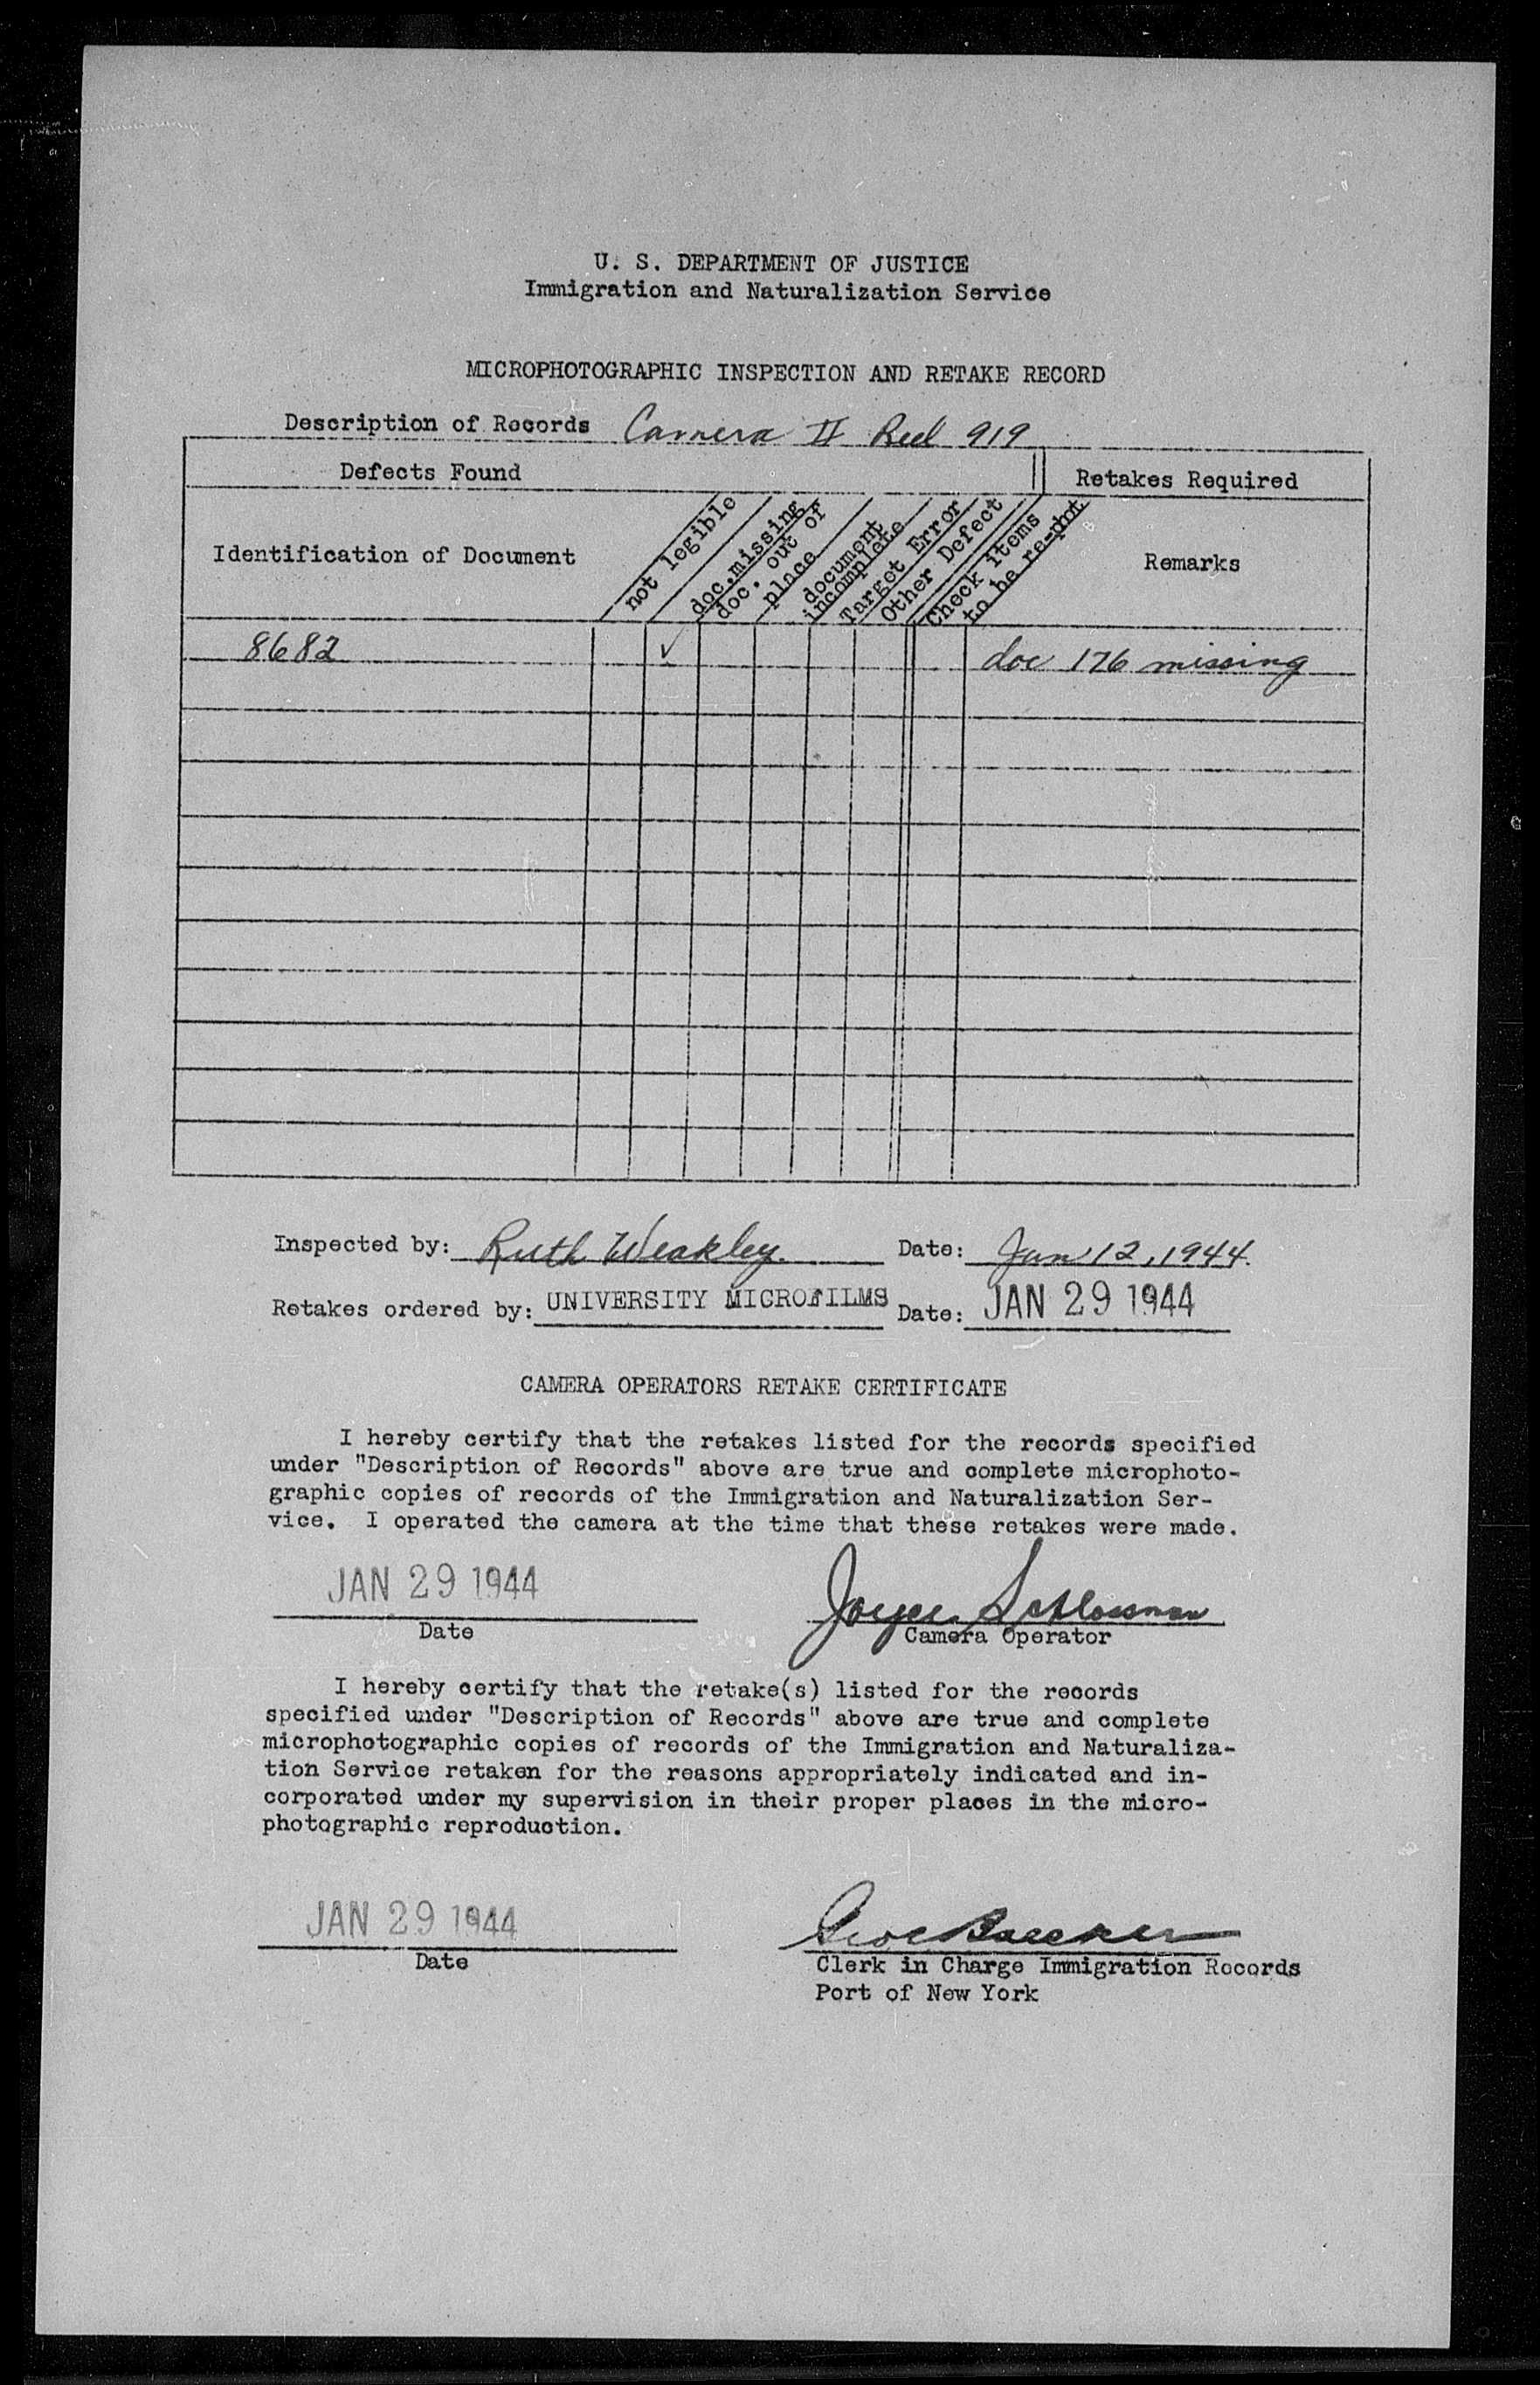 U. S. DEPARTMENT OF JUSTICE
Immigration and Naturalization Service
MICROPHOTOGRAPHIC INSPECTION AND RETAKE RECORD
Description of Records Camera II Reel 919
Defects Found
Retakes Required
Identification of Document
not legible
doc. missing
doc. out of
place
document
incomplete
Target Error
Other Defect
Check items
to be re-phot
Remarks
8682 ✓ doc 176 missing
Inspected by: Ruth Weakley Date: Jan 12, 1944.
Retakes ordered by: UNIVERSITY MICROFILMS Date: JAN 29 1944
CAMERA OPERATORS RETAKE CERTIFICATE
I hereby certify that the retakes listed for the records specified
under "Description of Records" above are true and complete microphoto-
graphic copies of records of the Immigration and Naturalization Ser-
vice. I operated the camera at the time that these retakes were made.
JAN 29 1944 Joyce Schlossman
Date Camera Operator
I hereby certify that the retake(s) listed for the records
specified under "Description of Records" above are true and complete
microphotographic copies of records of the Immigration and Naturaliza-
tion Service retaken for the reasons appropriately indicated and in-
corporated under my supervision in their proper places in the micro-
photographic reproduction.
JAN 29 1944
Date
Clerk in Charge Immigration Records
Port of New York